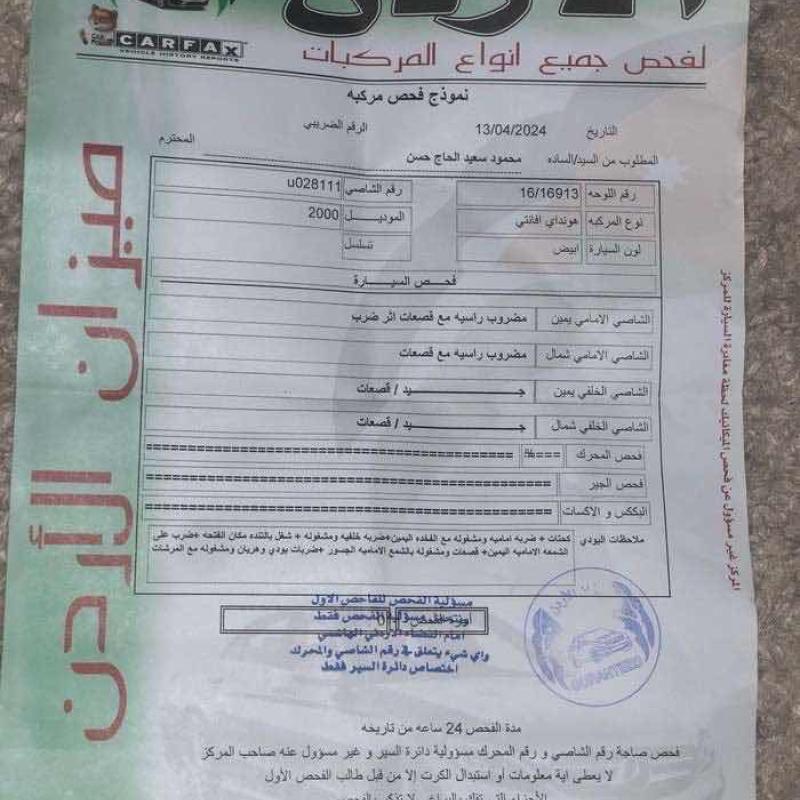 CARFAX
VEHICLE HISTORY REPORTS
لفحص جميع انواع المركبات
نموذج فحص مركبه
التاريخ 13/04/2024 الرقم الضريبي
المطلوب من السيد/الساده محمود سعيد الحاج حسن المحترم
رقم اللوحه 16/16913 رقم الشاصي u028111
نوع المركبه هونداي افانتي الموديـــــل 2000
لون السيارة ابيض تسلسل
فحص السيـــــارة
الشاصي الامامي يمين مضروب راسيه مع قصعات اثر ضرب
الشاصي الامامي شمال مضروب راسيه مع قصعات
الشاصي الخلفي يمين جـــــــيد / قصعات
الشاصي الخلفي شمال جـــــــيد / قصعات
فحص المحرك ====%
فحص الجير
البكس و الاكسات
ملاحظات البودي كحتات + ضربه اماميه ومشغوله مع الفخده اليمين+ضربه خلفيه ومشغوله + شغل بالتنده مكان الفتحه +ضرب على
الشمعه الاماميه اليمين+ قصعات ومشغوله بالشمع الاماميه الجسور +ضربات بودي وهريان ومشغوله مع المرشات
مسؤلية الفحص للفاحص الاول
مسؤلية الفحص فقط
امام القضاء الاردني الهاشمي
واي شيء يتعلق في رقم الشاصي والمحرك
اختصاص دائرة السير فقط
مدة الفحص 24 ساعه من تاريخه
فحص صاحة رقم الشاصي و رقم المحرك مسؤولية دائرة السير و غير مسؤول عنه صاحب المركز
لا يعطى اية معلومات أو استبدال الكرت إلا من قبل طالب الفحص الأول
ميزان الأردن
المركز غير مسؤول عن فحص الميكانيك لحظة مغادرة السيارة للمركز